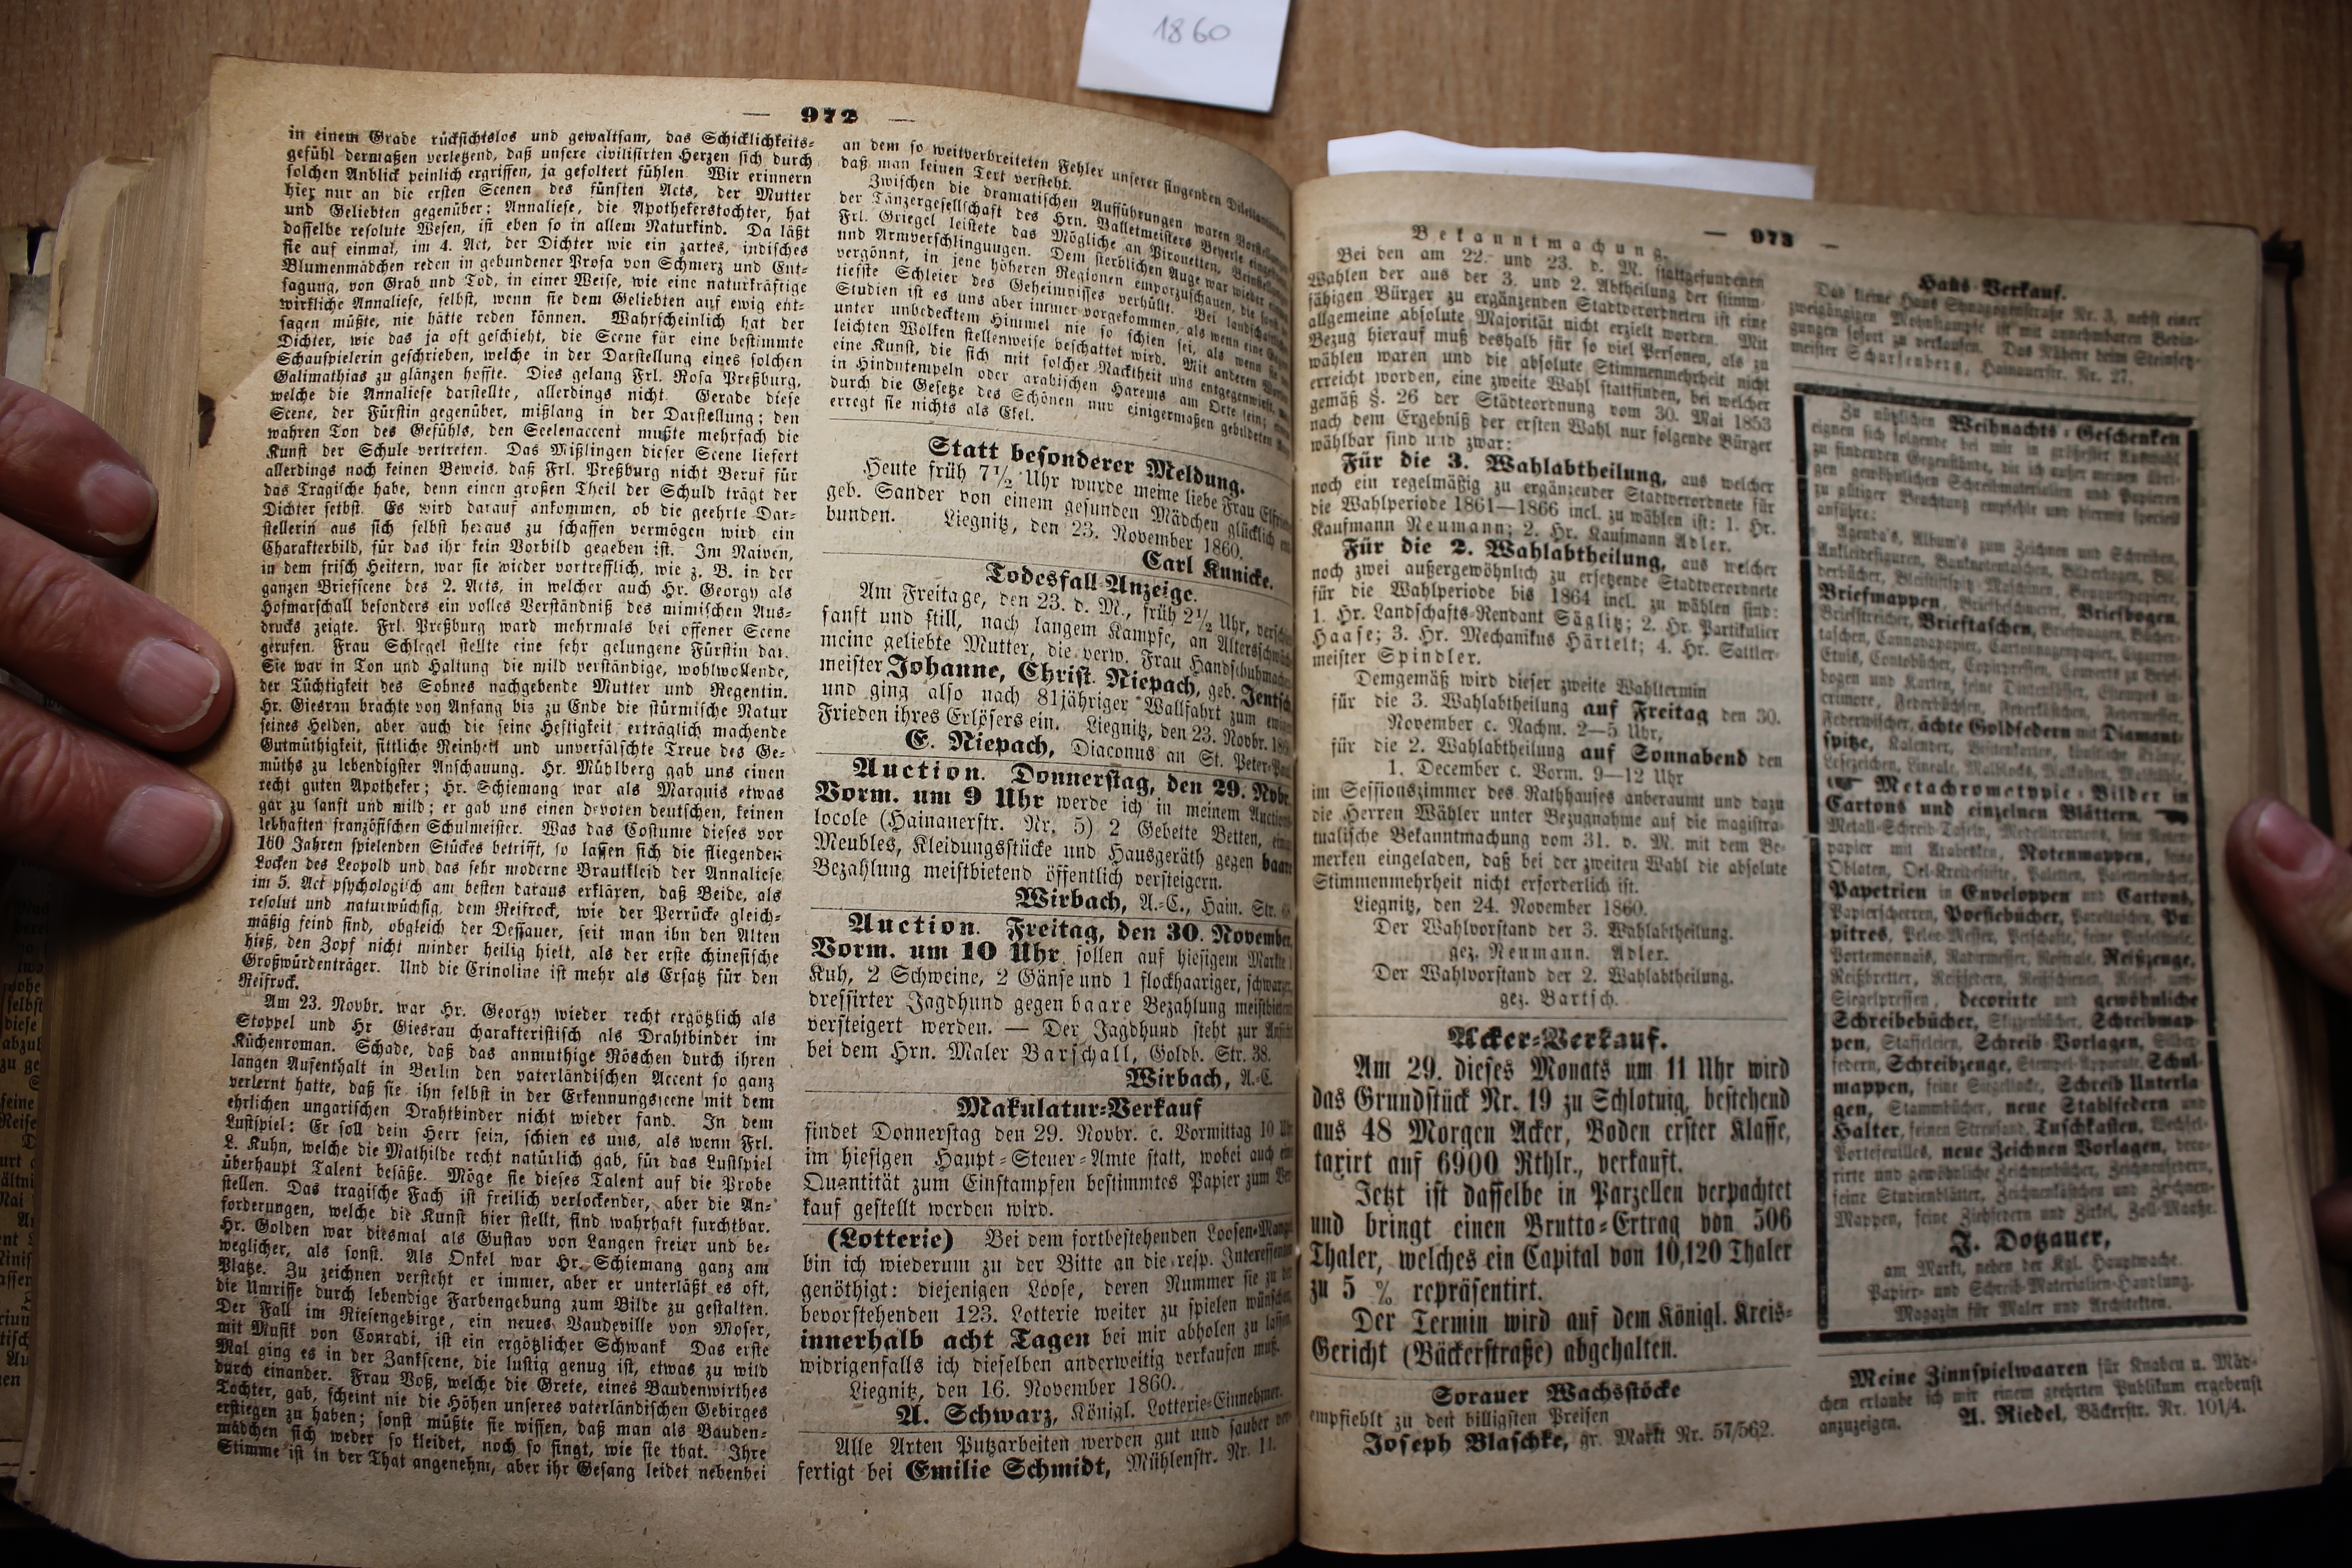 1860
— 972 —
in einem Grade rücksichtslos und gewaltsam, das Schicklichkeits-
gefühl dermaßen verletzend, daß unsere civilisirten Herzen sich durch
solchen Anblick peinlich ergriffen, ja gefoltert fühlen. Wir erinnern
hier nur an die ersten Scenen des fünften Acts, der Mutter
und Geliebten gegenüber; Annaliese, die Apothekerstochter, hat
dasselbe resolute Wesen, ist eben so in allem Naturkind. Da läßt
sie auf einmal, im 4. Act, der Dichter wie ein zartes, indisches
Blumenmädchen reden in gebundener Prosa von Schmerz und Ent-
sagung, von Grab und Tod, in einer Weise, wie eine naturkräftige
wirkliche Annaliese, selbst, wenn sie dem Geliebten auf ewig ent-
sagen müßte, nie hätte reden können. Wahrscheinlich hat der
Dichter, wie das ja oft geschieht, die Scene für eine bestimmte
Schauspielerin geschrieben, welche in der Darstellung eines solchen
Galimathias zu glänzen hoffte. Dies gelang Frl. Rosa Preßburg,
welche die Annaliese darstellte, allerdings nicht. Gerade diese
Scene, der Fürstin gegenüber, mißlang in der Darstellung; den
wahren Ton des Gefühls, den Seelenaccent mußte mehrfach die
Kunst der Schule vertreten. Das Mißlingen dieser Scene liefert
allerdings noch keinen Beweis, daß Frl. Preßburg nicht Beruf für
das Tragische habe, denn einen großen Theil der Schuld trägt der
Dichter selbst. Es wird darauf ankommen, ob die geehrte Dar-
stellerin aus sich selbst heraus zu schaffen vermögen wird ein
Charakterbild, für das ihr kein Vorbild gegeben ist. Im Naiven,
in dem frisch Heitern, war sie wieder vortrefflich, wie z. B. in der
ganzen Briefscene des 2. Acts, in welcher auch Hr. Georgy als
Hofmarschall besonders ein volles Verständniß des mimischen Aus-
drucks zeigte. Frl. Preßburg ward mehrmals bei offener Scene
gerufen. Frau Schlegel stellte eine sehr gelungene Fürstin dar.
Sie war in Ton und Haltung die mild verständige, wohlwollende,
der Tüchtigkeit des Sohnes nachgebende Mutter und Regentin.
Hr. Giesrau brachte von Anfang bis zu Ende die stürmische Natur
seines Helden, aber auch die seine Heftigkeit erträglich machende
Gutmüthigkeit, sittliche Reinheit und unverfälschte Treue des Ge-
müths zu lebendigster Anschauung. Hr. Mühlberg gab uns einen
recht guten Apotheker; Hr. Schiemang war als Marquis etwas
gar zu sanft und mild; er gab uns einen devoten deutschen, keinen
lebhaften französischen Schulmeister. Was das Costume dieses vor
160 Jahren spielenden Stückes betrifft, so lassen sich die fliegenden
Locken des Leopold und das sehr moderne Brautkleid der Annaliese
im 5. Act psychologisch am besten daraus erklären, daß Beide, als
resolut und naturwüchsig, dem Reifrock, wie der Perrücke gleich-
mäßig feind sind, obgleich der Dessauer, seit man ihn den Alten
hieß, den Zopf nicht minder heilig hielt, als der erste chinesische
Großwürdenträger. Und die Crinoline ist mehr als Ersatz für den
Reifrock.
Am 23. Novbr. war Hr. Georgy wieder recht ergötzlich als
Stoppel und Hr Giesrau charakteristisch als Drahtbinder im
Küchenroman. Schade, daß das anmuthige Röschen durch ihren
langen Aufenthalt in Berlin den vaterländischen Accent so ganz
verlernt hatte, daß sie ihn selbst in der Erkennungsscene mit dem
ehrlichen ungarischen Drahtbinder nicht wieder fand. In dem
Lustspiel: Er soll dein Herr sein, schien es uns, als wenn Frl.
L. Kuhn, welche die Mathilde recht natürlich gab, für das Lustspiel
überhaupt Talent besäße. Möge sie dieses Talent auf die Probe
stellen. Das tragische Fach ist freilich verlockender, aber die An-
forderungen, welche die Kunst hier stellt, sind wahrhaft furchtbar.
Hr. Golden war diesmal als Gustav von Langen freier und be-
weglicher, als sonst. Als Onkel war Hr. Schiemang ganz am
Platze. Zu zeichnen versteht er immer, aber er unterläßt es oft,
die Umrisse durch lebendige Farbengebung zum Bilde zu gestalten.
Der Fall im Riesengebirge, ein neues Vaudeville von Moser,
mit Musik von Conradi, ist ein ergötzlicher Schwank Das erste
Mal ging es in der Zankscene, die lustig genug ist, etwas zu wild
durch einander. Frau Voß, welche die Grete, eines Baudenwirthes
Tochter, gab, scheint nie die Höhen unseres vaterländischen Gebirges
erstiegen zu haben; sonst müßte sie wissen, daß man als Bauden-
mädchen sich weder so kleidet, noch so singt, wie sie that. Ihre
Stimme ist in der That angenehm, aber ihr Gesang leidet nebenbei
an dem so weitverbreiteten Fehler unserer singenden
daß man keinen Text versteht.
Zwischen die dramatischen Aufführungen waren
der Tänzergesellschaft des Hrn. Balletmeisters Beyerle
Frl. Griegel leistete das Mögliche an Pirouetten,
und Armverschlingungen. Dem sterblichen Auge war wieder
vergönnt, in jene höheren Regionen emporzuschauen, die sonst
tiefste Schleier des Geheimnisses verhüllt. Bei
Studien ist es uns aber immer vorgekommen, als wenn eine
unter unbedecktem Himmel nie so schien sei, als wenn
leichten Wolken stellenweise beschattet wird. Mit anderen
eine Kunst, die sich mit solcher Nacktheit uns
in Hindutempeln oder arabischen Harems am Orte sein;
durch die Gesetze des Schönen nur einigermaßen gebildeten
erregt sie nichts als Ekel.
Statt besonderer Meldung.
Heute früh 7½ Uhr wurde meine liebe Frau
geb. Sander von einem gesunden Mädchen glücklich
bunden. Liegnitz, den 23. November 1860.
Carl Kunicke.
Todesfall-Anzeige.
Am Freitage, den 23. d. M., früh 2½ Uhr,
sanft und still, nach langem Kampfe, an
meine geliebte Mutter, die verw. Frau
meister Johanne, Christ. Niepach, geb.
und ging also nach 81jähriger Wallfahrt zum
Frieden ihres Erlösers ein. Liegnitz, den 23. Novbr.
E. Niepach, Diaconus an St.
Auction. Donnerstag, den 29. Novbr.
Vorm. um 9 Uhr werde ich in meinem
locole (Hainauerstr. Nr. 5) 2 Gebette Betten,
Meubles, Kleidungsstücke und Hausgeräth gegen baare
Bezahlung meistbietend öffentlich versteigern.
Wirbach, A.-C., Hain. Str.
Auction. Freitag, den 30. November,
Vorm. um 10 Uhr sollen auf hiesigem Markte
Kuh, 2 Schweine, 2 Gänse und 1 flockhaariger,
dressirter Jagdhund gegen baare Bezahlung
versteigert werden. — Der Jagdhund steht zur
bei dem Hrn. Maler Barschall, Goldb. Str. 38.
Wirbach, A.-C.
Makulatur-Verkauf
findet Donnerstag den 29. Novbr. c. Vormittag 10
im hiesigen Haupt-Steuer-Amte statt, wobei auch
Quantität zum Einstampfen bestimmtes Papier zum
kauf gestellt werden wird.
(Lotterie) Bei dem fortbestehenden
bin ich wiederum zu der Bitte an die resp.
genöthigt: diejenigen Loose, deren Nummer sie
bevorstehenden 123. Lotterie weiter zu spielen
innerhalb acht Tagen bei mir abholen zu
widrigenfalls ich dieselben anderweitig verkaufen muß.
Liegnitz, den 16. November 1860.
A. Schwarz, Königl. Lotterie-Einnehmer.
Alle Arten Putzarbeiten werden gut und sauber
fertigt bei Emilie Schmidt, Mühlenstr. Nr. 11.
— 973 —
Bekanntmachung.
Bei den am 22. und 23. d. M. stattgefundenen
Wahlen der aus der 3. und 2. Abtheilung der stimm-
fähigen Bürger zu ergänzenden Stadtverordneten ist eine
allgemeine absolute Majorität nicht erzielt worden. Mit
Bezug hierauf muß deshalb für so viel Personen, als zu
wählen waren und die absolute Stimmenmehrheit nicht
erreicht worden, eine zweite Wahl stattfinden, bei welcher
gemäß §. 26 der Städteordnung vom 30. Mai 1853
nach dem Ergebniß der ersten Wahl nur folgende Bürger
wählbar sind und zwar:
Für die 3. Wahlabtheilung, aus welcher
noch ein regelmäßig zu ergänzender Stadtverordnete für
die Wahlperiode 1861—1866 incl. zu wählen ist: 1. Hr.
Kaufmann Neumann; 2. Hr. Kaufmann Adler.
Für die 2. Wahlabtheilung, aus welcher
noch zwei außergewöhnlich zu ersetzende Stadtverordnete
für die Wahlperiode bis 1864 incl. zu wählen sind:
1. Hr. Landschafts-Rendant Säglitz; 2. Hr. Partikulier
Haase; 3. Hr. Mechanikus Härtelt; 4. Hr. Sattler-
meister Spindler.
Demgemäß wird dieser zweite Wahltermin
für die 3. Wahlabtheilung auf Freitag den 30.
November c. Nachm. 2—5 Uhr,
für die 2. Wahlabtheilung auf Sonnabend den
1. December c. Vorm. 9—12 Uhr
im Sessionszimmer des Rathhauses anberaumt und dazu
die Herren Wähler unter Bezugnahme auf die magistra-
tualische Bekanntmachung vom 31. v. M. mit dem Be-
merken eingeladen, daß bei der zweiten Wahl die absolute
Stimmenmehrheit nicht erforderlich ist.
Liegnitz, den 24. November 1860.
Der Wahlvorstand der 3. Wahlabtheilung.
gez. Neumann. Adler.
Der Wahlvorstand der 2. Wahlabtheilung.
gez. Bartsch.
Acker-Verkauf.
Am 29. dieses Monats um 11 Uhr wird
das Grundstück Nr. 19 zu Schlotnig, bestehend
aus 48 Morgen Acker, Boden erster Klasse,
taxirt auf 6900 Rthlr., verkauft.
Jetzt ist dasselbe in Parzellen verpachtet
und bringt einen Brutto-Ertrag von 506
Thaler, welches ein Capital von 10,120 Thaler
zu 5 % repräsentirt.
Der Termin wird auf dem Königl. Kreis-
Gericht (Bäckerstraße) abgehalten.
Sorauer Wachsstöcke
empfiehlt zu den billigsten Preisen
Joseph Blaschke, gr. Markt Nr. 57/562.
Haus-Verkauf.
Das kleine Haus Synagogenstraße Nr. 3, nebst einer
zweigängigen Mohnstampfe ist mit annehmbaren Bedin-
gungen sofort zu verkaufen. Das Nähere beim Steinsetz-
meister Scharfenberg, Hainauerstr. Nr. 27.
Zu nützlichen Weihnachts-Geschenken
eignen sich folgende bei mir in größester Auswahl
zu findenden Gegenstände, die ich außer meinen übri-
gen gewöhnlichen Schreibmaterialien und Papieren
zu gütiger Beachtung empfehle und hiermit speciell
anführe:
Agenda's, Album's zum Zeichnen und Schreiben,
Ankleidefiguren, Banknotentaschen, Bilderbogen, Bil-
derbücher, Bleistiftspitz-Maschinen,
Briefmappen, Briefbeschwerer, Briefbogen,
Briefstreicher, Brieftaschen, Briefwaagen, Bücher-
taschen, Cannevaspapier, Cartonnagenpapier, Cigarren-
Etuis, Contobücher, Copirpressen, Couverts zu Brief-
bogen und Karten, feine Dintenfässer,
Federbüchsen, Federkästchen, Federmesser,
Federwischer, ächte Goldfedern mit Diamant-
spitze, Kalender,
Lesezeichen, Lineale, Malblocks, Malkasten,
Metachromotypie-Bilder in
Cartons und einzelnen Blättern.
Metall-Schreib-Tafeln,
papier mit Arabesken, Notenmappen, feine
Oblaten, Oel-Kreidestifte, Paletten,
Papetrien in Enveloppen und Cartons,
Papierscheeren, Poesiebücher, Pu-
pitres, Petschafte,
Portemonnais, Radirmesser, Reißzeuge,
Reißbretter, Reißfedern, Reißschienen,
Siegelpressen, decorirte und gewöhnliche
Schreibebücher, Skizzenbücher, Schreibmap-
pen, Staffeleien, Schreib-Vorlagen,
federn, Schreibzeuge, Stempel-Apparate, Schul-
mappen, feine Siegellacke, Schreib-Unterla-
gen, Stammbücher, neue Stahlfedern und
Halter, feinen Streusand, Tuschkasten, Wechsel-
Portefeuilles, neue Zeichnen-Vorlagen, deco-
rirte und gewöhnliche Zeichnenbücher, Zeichnenfedern,
feine Studienblätter, Zeichnenkästchen und Zeichnen-
Mappen, feine Ziehfedern und Zirkel, Zoll-Maaße.
J. Dotzauer,
am Markt, neben der Kgl. Hauptwache.
Papier- und Schreib-Materialien-Handlung.
Magazin für Maler und Architekten.
Meine Zinnspielwaaren für Knaben u. Mäd-
chen erlaube ich mir einem geehrten Publikum ergebenst
anzuzeigen. A. Riedel, Bäckerstr. Nr. 101/4.